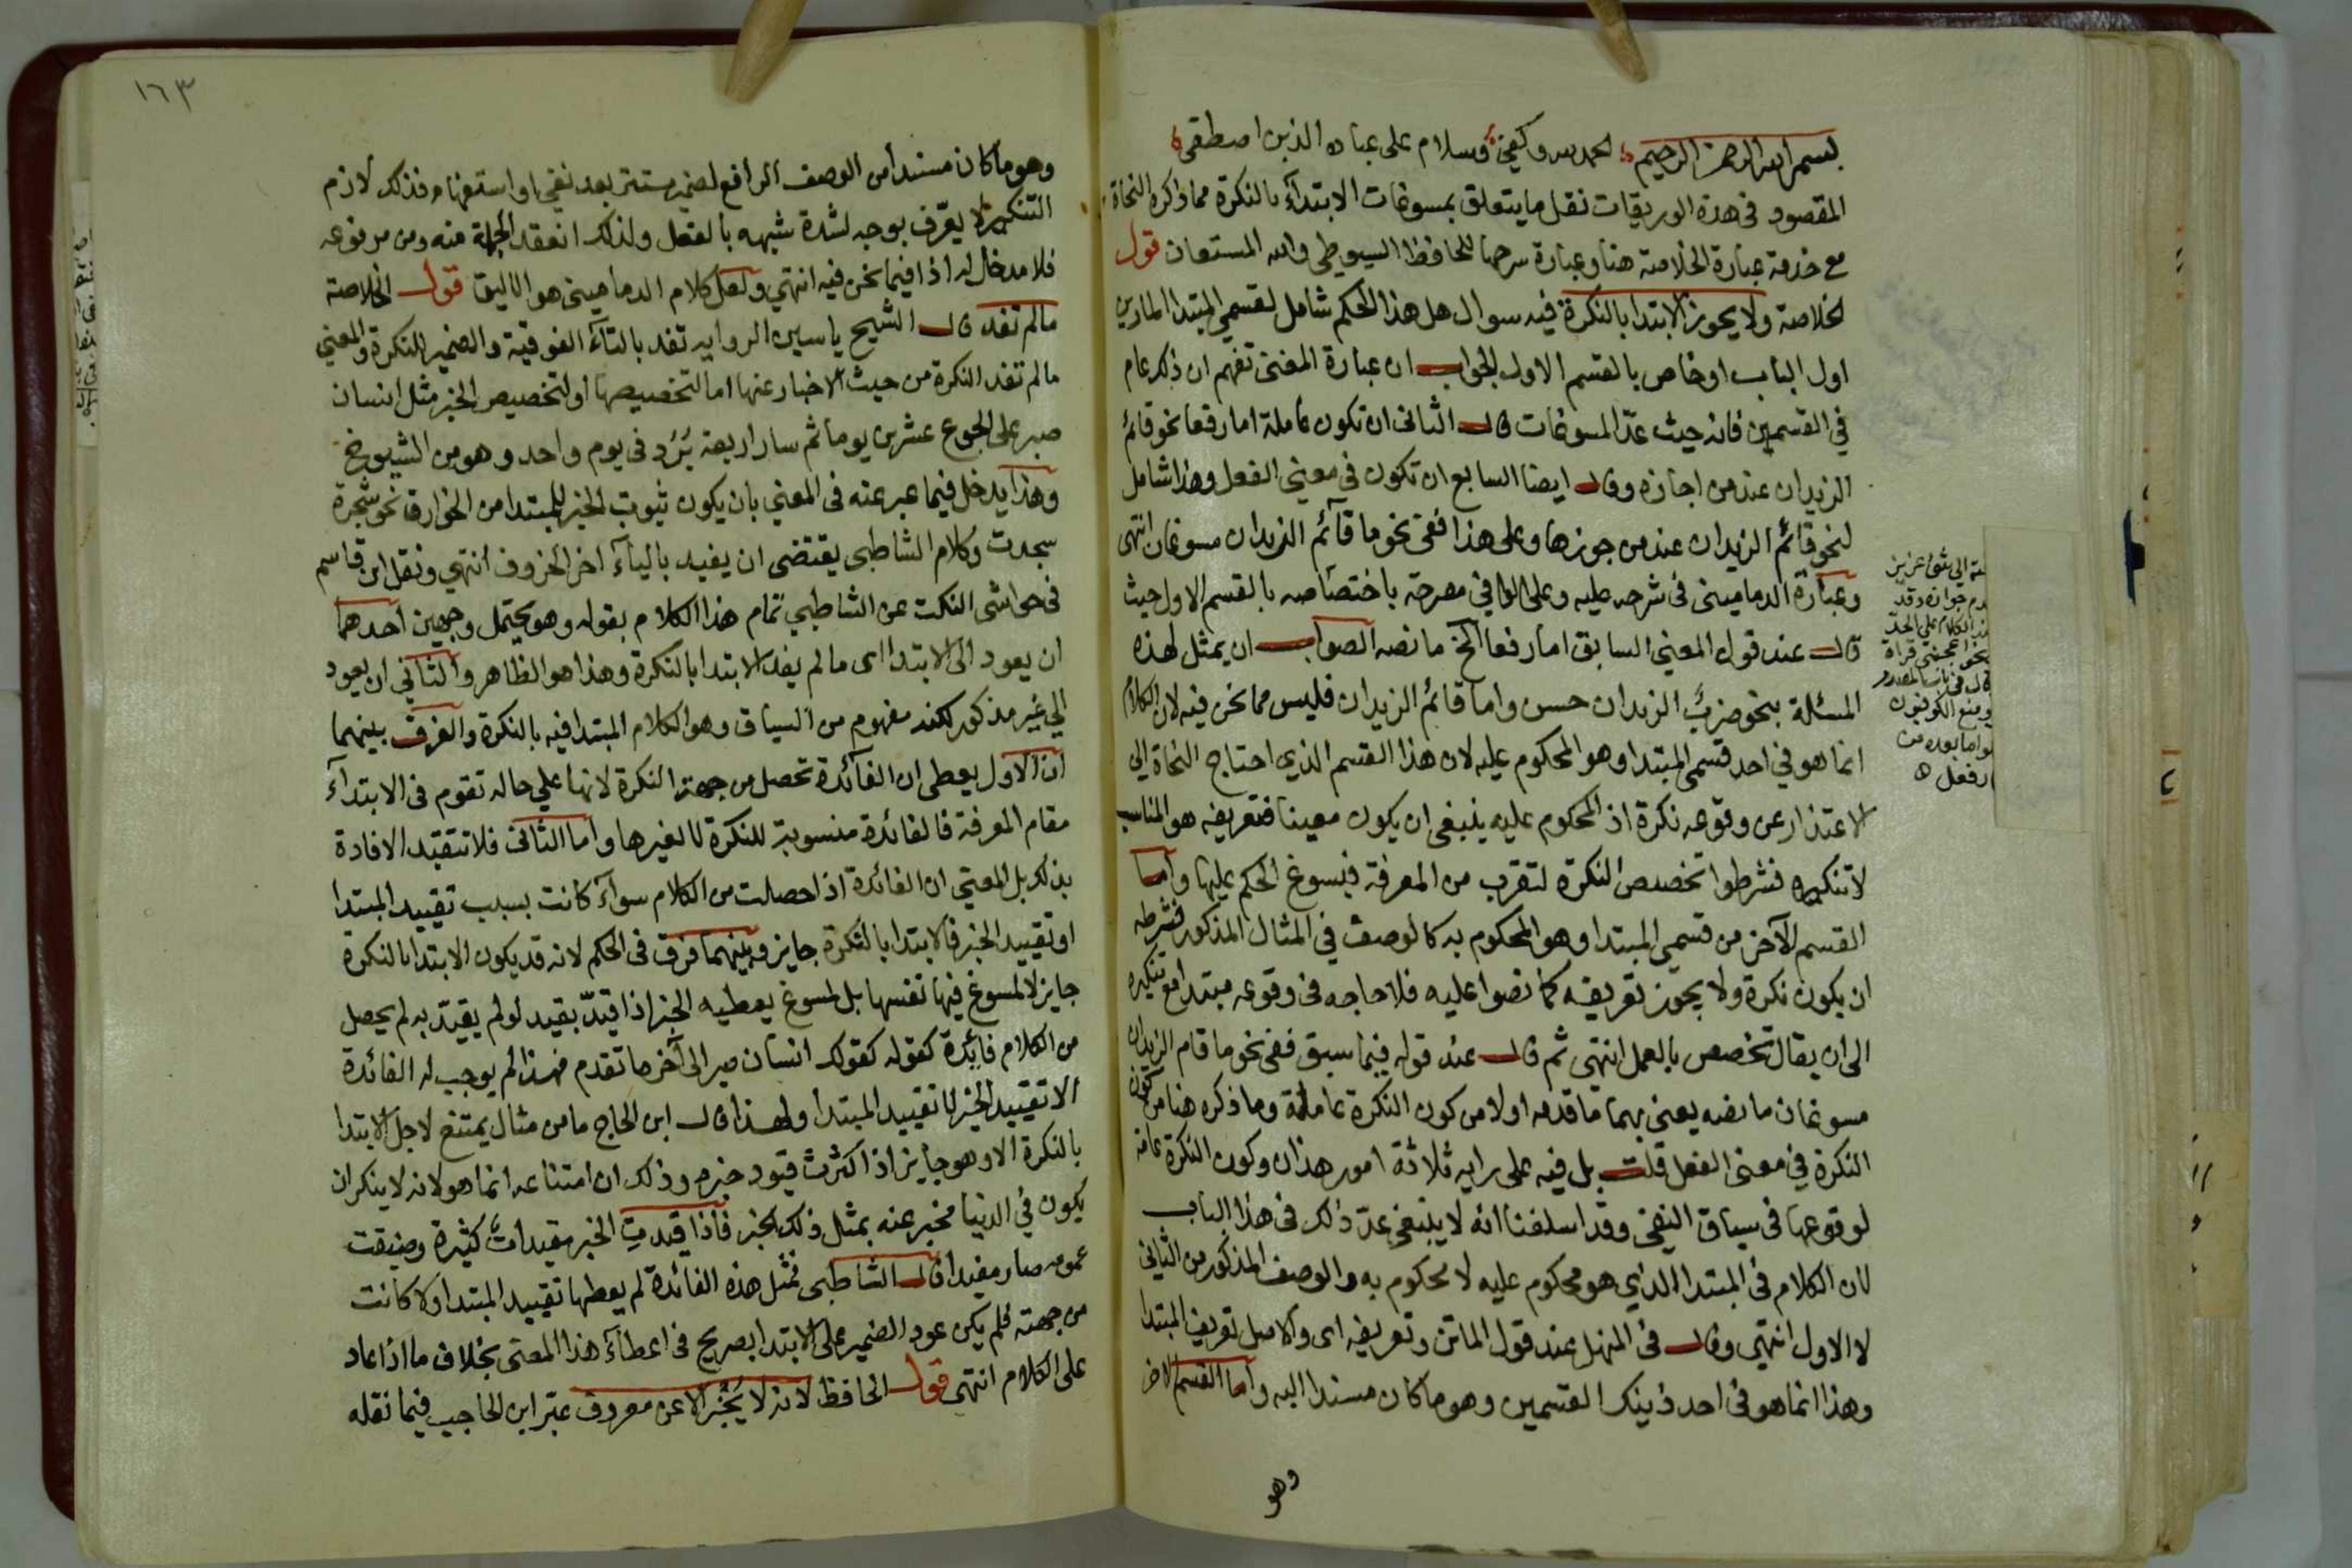 بسم الله الرحمن الرحيم الحمد لله وكفى وسلام على عباده الذين اصطفى
المقصود فى هذة الوريقات نقل ما يتعلق بمسوغات الابتدآء بالنكرة مما ذكره النحاة
مع خدمة عبارة الخلاصة هنا وعبارة شرحها للحافظ السيوطي والله المستعان قول
الخلاصة ولا يجوز الابتدا بالنكرة فيه سوال هل هذا الحكم شامل لقسمي المبتدا المارين
اول الباب او خاص بالقسم الاول الجواب ان عبارة المغنى تفهم ان ذلك عام
في القسمين فانه حيث عدّ المسوغات قال الثانى ان تكون عاملة اما رفعا نحو قائم
الزيدان عند من اجازه وقال ايضا السابع ان تكون فى معنى الفعل وهذا شامل
لنحو قائم الزيدان عند من جوزها وعلى هذا ففى نحو ما قآئم الزيدان مسوغان انتهى
وعبارة الدمامينى فى شرحه عليه وعلى الوافي مصرحة باختصاصه بالقسم الاول حيث
قال عند قول المغني السابق اما رفعا الخ ما نصه الصواب ان يمثل لهذه
المسئلة بنحو ضرب الزيدان حسن واما قائم الزيدان فليس مما نحن فيه لان الكلام
انما هو في احد قسمي المبتدا وهو المحكوم عليه لان هذا القسم الذي احتاج النحاة الي
الاعتذار عن وقوعه نكرة اذ المحكوم عليه ينبغى ان يكون معينا فتعريفه هو المناسب
لا تنكيره فشرطوا تخصيص النكرة لتقرب من المعرفة فيسوغ الحكم عليها واما
القسم الآخر من قسمي المبتدا وهو المحكوم به كالوصف في المثال المذكور فشرطه
ان يكون نكرة ولا يجوز تعريفه كما نصوا عليه فلا حاجه فى وقوعه مبتدا مع تنكيره
الى ان يقال تخصص بالعمل انتهى ثم قال عند قوله فيما سبق ففى نحو ما قام الزيدان
مسوغان ما نصه يعنى بهما ما قدمه اولا من كون النكرة عاملة وما ذكره هنا من كون
النكرة في معنى الفعل قلت بل فيه على رايه ثلاثة امور هذان وكون النكرة عامة
لوقوعها فى سياق النفى وقد اسلفنا انه لا ينبغى عدّ ذلك فى هذا الباب
لان الكلام فى المبتدا الذي هو محكوم عليه لا محكوم به والوصف المذكور من الثاني
لا الاول انتهى وقال فى المنهل عند قول الماتن وتعريفه اى والاصل تعريف المبتدا
وهذا انما هو فى احد ذينك القسمين وهو ما كان مسندا اليه واما القسم الاخر
وهو
الي شئ عزيز
جوازه وقد
الكلام علي الحد
قراة
المصدر
ومنع الكوفيون
واما بعده من
رفعل ه
١٦٣
وهو ما كان مسندا من الوصف الرافع لضمير مستتر بعد نفي او استفهام فذلك لازم
التنكير لا يعرّف بوجه لشدة شبهه بالفعل ولذلك انعقد الجملة منه ومن مرفوعه
فلا مدخل له اذا فيما نحن فيه انتهي ولعل كلام الدمامينى هو الاليق قول الخلاصة
مالم تفد قال الشيخ ياسين الروايه تفد بالتآء الفوقية والضمير للنكرة والمعني
مالم تفد النكرة من حيث الاخبار عنها اما لتخصيصها او لتخصيص الخبر مثل انسان
صبر على الجوع عشرين يوما ثم سار اربعة بُرُد فى يوم واحد وهو من الشيوخ
وهذا يدخل فيما عبر عنه فى المغني بان يكون ثبوت الخبر للمبتدا من الخوارق نحو شجرة
سجدت وكلام الشاطبى يقتضى ان يفيد باليآء اخر الحروف انتهي ونقل ابن قاسم
فى حواشى النكت عن الشاطبي تمام هذا الكلام بقوله وهو يحتمل وجهين احدهما
ان يعود الى الابتدا اى مالم يفد الابتدا بالنكرة وهذا هو الظاهر والثاني ان يعود
الي غير مذكور لكنه مفهوم من السياق وهو الكلام المبتدا فيه بالنكرة والفرق بينهما
ان الاول يعطى ان الفآئدة تحصل من جهة النكرة لانها علي حاله تقوم فى الابتدآء
مقام المعرفة فالفائدة منسوبة للنكرة لا لغيرها واما الثانى فلا تتقيد الافادة
بذلك بل المعتبر ان الفائدة اذا حصلت من الكلام سوآء كانت بسبب تقييد المبتدا
او تقييد الخبر فالابتدا بالنكرة جايز وبينهما فرق فى الحكم لانه قد يكون الابتدا بالنكرة
جايز لا لمسوغ فيها نفسها بل لمسوغ يعطيه الخبر اذا قيدّ بقيد لو لم يقيّد به لم يحصل
من الكلام فايدة كقوله كقولك انسان صبر الى آخر ما تقدم فهذا لم يوجب له الفائدة
الا تقييد الخبر لا تقييد المبتدا ولهذا قال ابن الحاج ما من مثال يمتنع لاجل الابتدا
بالنكرة الا وهو جايز اذا كثرت قيود خبره وذلك ان امتناعه انما هو لانه لا ينكر ان
يكون في الدنيا مخبر عنه بمثل ذلك الخبر فاذا قيدت الخبر مقيدات كثيرة وضيقت
عمومه صار مفيدا قال الشاطبى فمثل هذه الفائدة لم يعطها تقييد المبتدا ولا كانت
من جهته فلم يكن عود الضمير على الابتدا بصريح فى اعطآء هذا المعنى بخلاف ما اذا عاد
على الكلام انتهى قول الحافظ لانه لا يُخْبر الا عن معروف عبّر ابن الحاجب فيما نقله